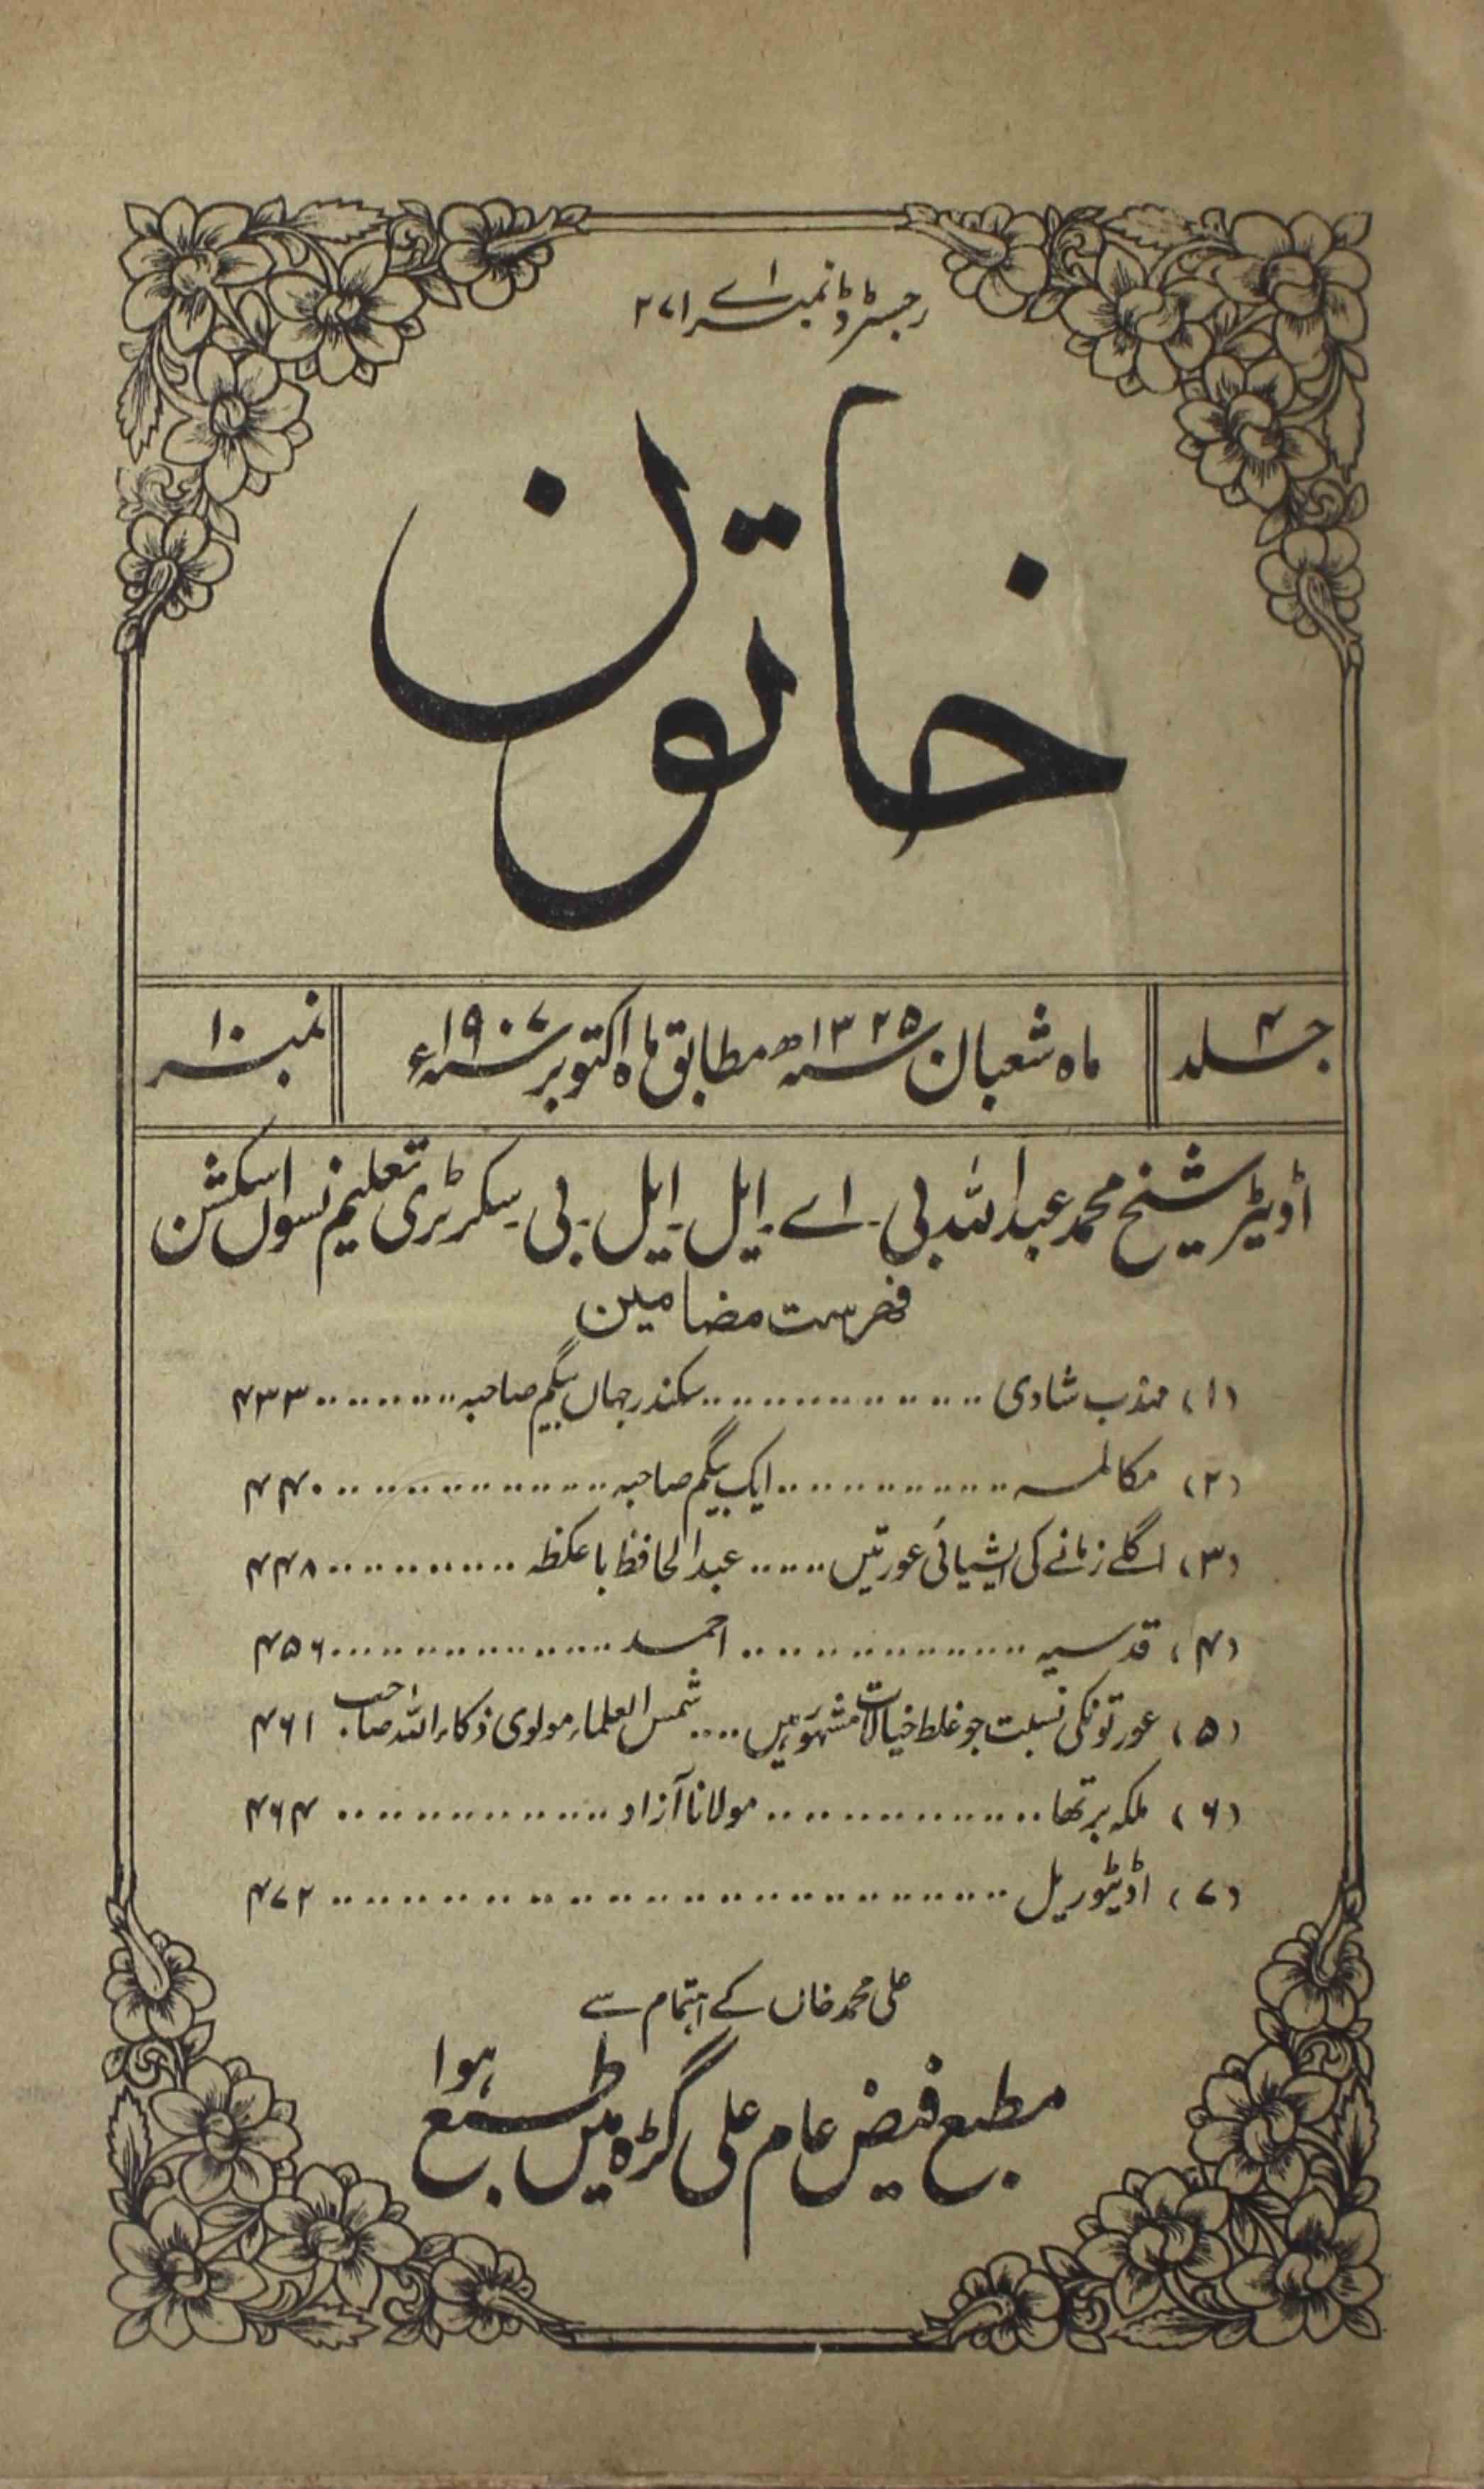 رجسٹرڈ نمبر اے ۲۷۱
خاتون
جلد ۴
ماہ شعبان سنہ ۱۳۲۵ھ مطابق ماہ اکتوبر سنہ ۱۹۰۷ء
نمبر ۱۰
اڈیٹر شیخ محمد عبداللہ بی۔ اے۔ ایل۔ ایل۔ بی۔ سکرٹری تعلیم نسواں سکشن
فہرست مضامین
(۱) مہذب شادی .......... سکندر جہاں بیگم صاحبہ .......... ۴۳۳
(۲) مکالمہ .......... ایک بیگم صاحبہ .......... ۴۴۰
(۳) اگلے زمانے کی ایشیائی عورتیں ...... عبدالحافظ باعکظہ .......... ۴۴۸
(۴) قدسیہ .......... احمد .......... ۴۵۶
(۵) عورتونکی نسبت جو غلط خیالات مشہور ہیں .... شمس العلماء مولوی ذکاء اللہ صاحب ۴۶۱
(۶) ملکہ برتھا .......... مولانا آزاد .......... ۴۶۴
(۷) اڈیٹوریل .......... ۴۷۲
علی محمد خاں کے اہتمام سے
مطبع فیض عام علی گڑہ میں طبع ہوا